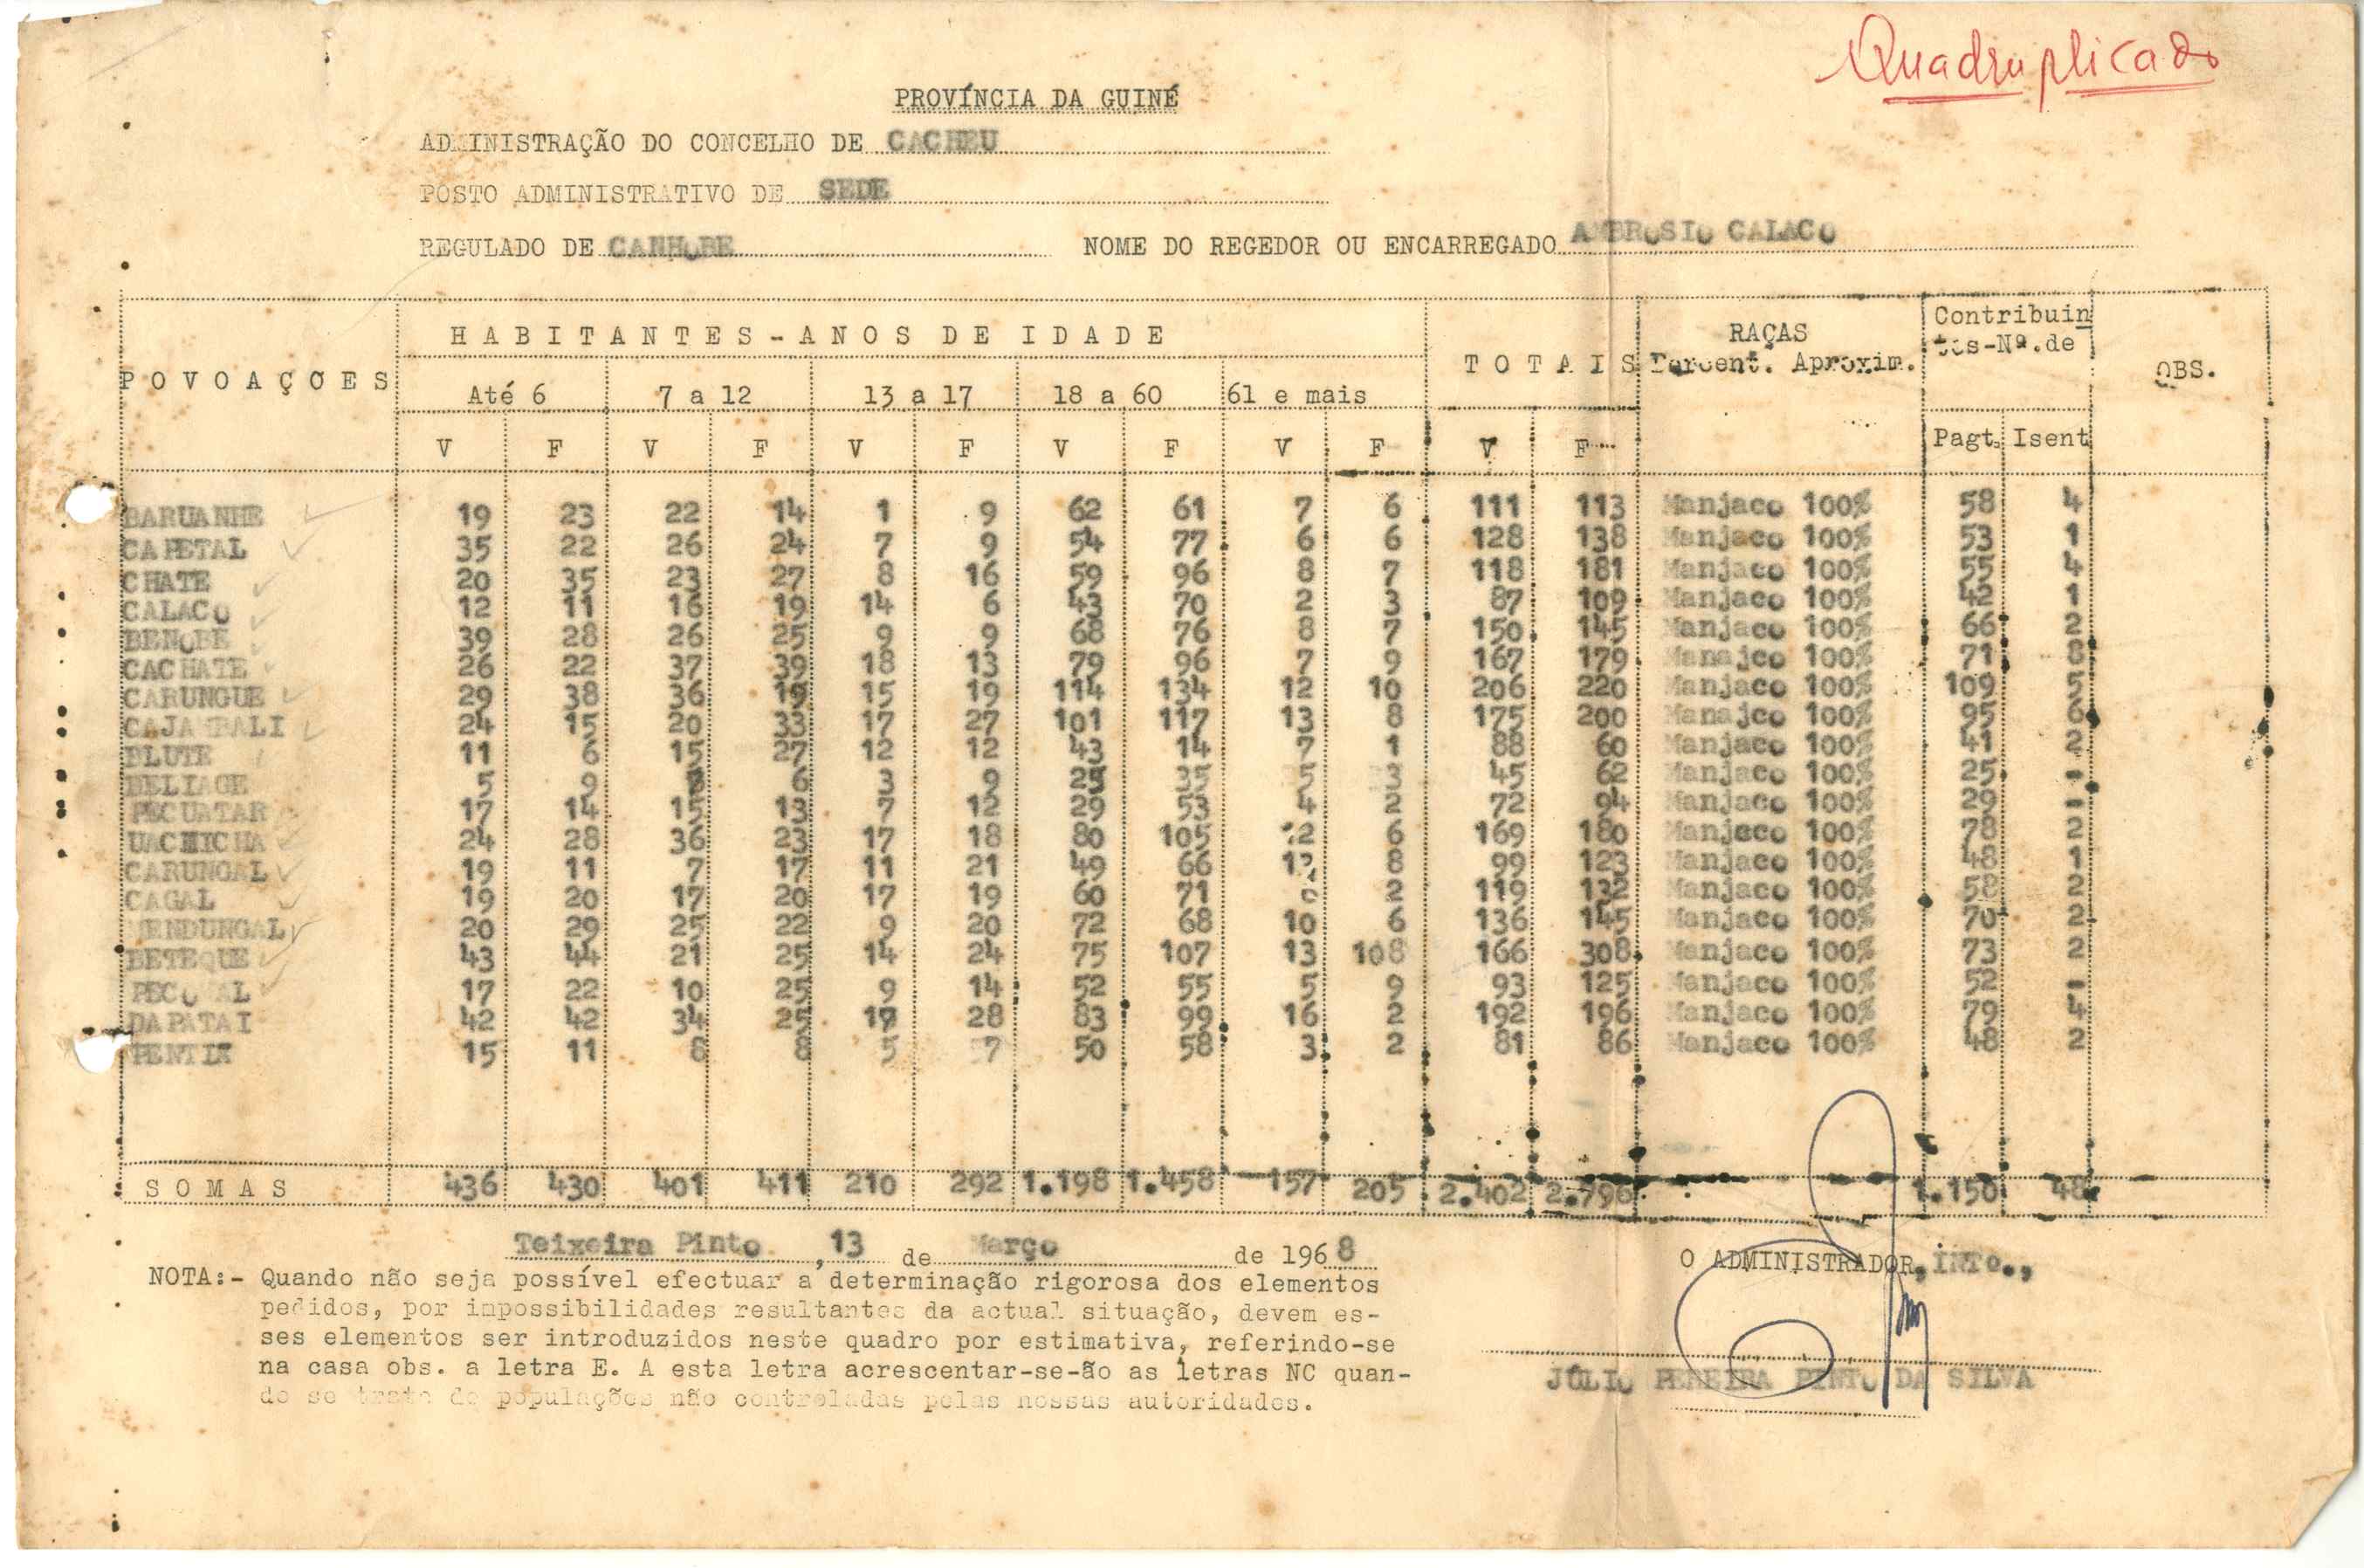 Quadruplicado
PROVÍNCIA DA GUINÉ
ADMINISTRAÇÃO DO CONCELHO DE CACHEU
POSTO ADMINISTRATIVO DE SEDE
REGULADO DE CANHOBE NOME DO REGEDOR OU ENCARREGADO AMBROSIO CALACO
POVOAÇÕES HABITANTES-ANOS DE IDADE TOTAIS RAÇAS Percent. Aproxim. Contribuin tes-Nº.de OBS.
Até 6 7 a 12 13 a 17 18 a 60 61 e mais
V F V F V F V F V F V F Pagt. Isent
BARUANHE 19 23 22 14 1 9 62 61 7 6 111 113 Manjaco 100% 58 4
CAPETAL 35 22 26 24 7 9 54 77 6 6 128 138 Manjaco 100% 53 1
CHATE 20 35 23 27 8 16 59 96 8 7 118 181 Manjaco 100% 55 4
CALACO 12 11 16 19 14 6 43 70 2 3 87 109 Manjaco 100% 42 1
BENOBE 39 28 26 25 9 9 68 76 8 7 150 145 Manjaco 100% 66 2
CACHATE 26 22 37 39 18 13 79 96 7 9 167 179 Manajco 100% 71 8
CARUNGUE 29 38 36 19 15 19 114 134 12 10 206 220 Manjaco 100% 109 5
CAJAMBALI 24 15 20 33 17 27 101 117 13 8 175 200 Manajco 100% 95 6
BLUTE 11 6 15 27 12 12 43 14 7 1 88 60 Manjaco 100% 41 2
BELIAGE 5 9 6 3 9 25 35 5 3 45 62 Manjaco 100% 25 -
PECUATAR 17 14 15 13 7 12 29 53 4 2 72 94 Manjaco 100% 29 -
UACHICHA 24 28 36 23 17 18 80 105 12 6 169 180 Manjaco 100% 78 2
CARUNGAL 19 11 7 17 11 21 49 66 8 99 123 Manjaco 100% 48 1
CAGAL 19 20 17 20 17 19 60 71 2 119 132 Manjaco 100% 58 2
MENDUNGAL 20 29 25 22 9 20 72 68 10 6 136 145 Manjaco 100% 70 2
BETEQUE 43 44 21 25 14 24 75 107 13 108 166 308 Manjaco 100% 73 2
17 22 10 25 9 14 52 55 5 9 93 125 Manjaco 100% 52 -
DAPATAI 42 42 34 25 17 28 83 99 16 2 192 196 Manjaco 100% 79 4
15 11 8 8 5 7 50 58 3 2 81 86 Manjaco 100% 48 2
SOMAS 436 430 401 411 210 292 1.198 1.458 157 205 2.402 2.796 1.150 48
Teixeira Pinto, 13 de Março de 1968
O ADMINISTRADOR, INTO.,
NOTA:- Quando não seja possível efectuar a determinação rigorosa dos elementos
pedidos, por impossibilidades resultantes da actual situação, devem es-
ses elementos ser introduzidos neste quadro por estimativa, referindo-se
na casa obs. a letra E. A esta letra acrescentar-se-ão as letras NC quan-
do se trate de populações não controladas pelas nossas autoridades.
JÚLIO PEREIRA PINTO DA SILVA